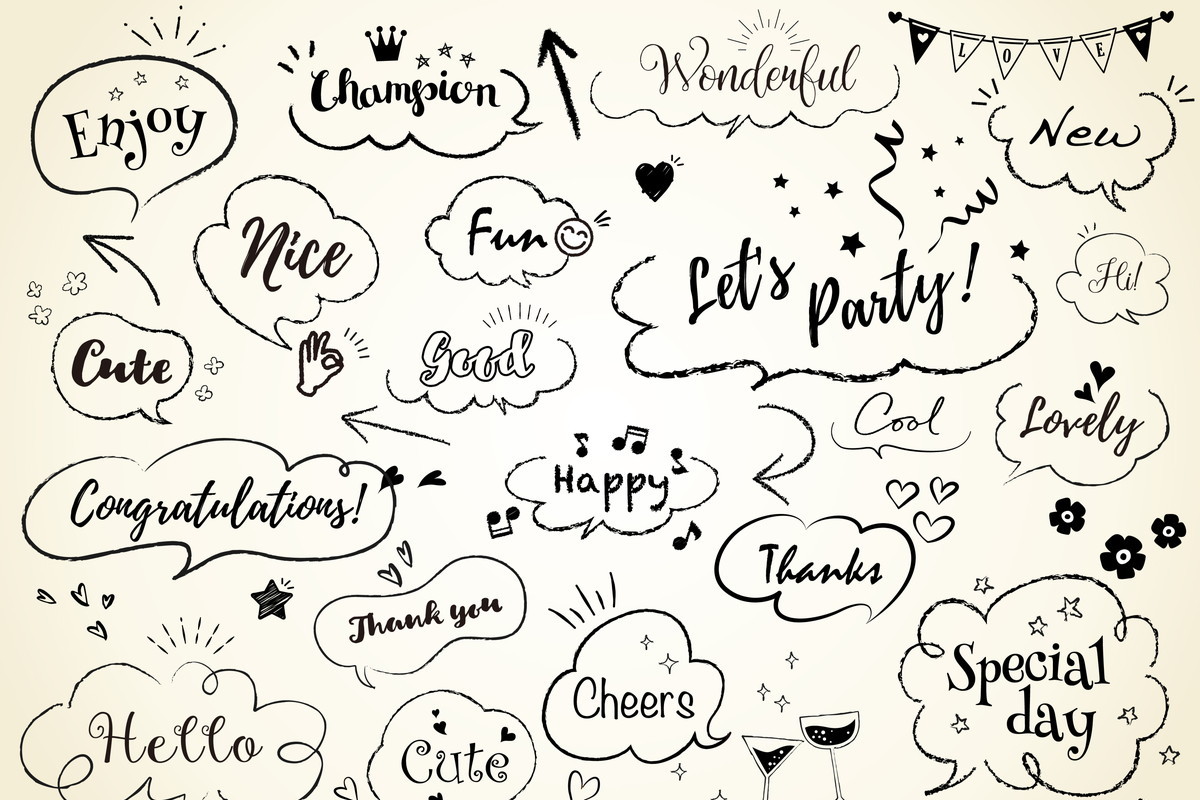 Enjoy
Champion
Wonderful
LOVE
New
Nice
Fun
Let's Party!
Hi!
Cute
Good
Cool
Lovely
Congratulations!
Happy
Thanks
Thank you
Cheers
Special
day
Hello
Cute